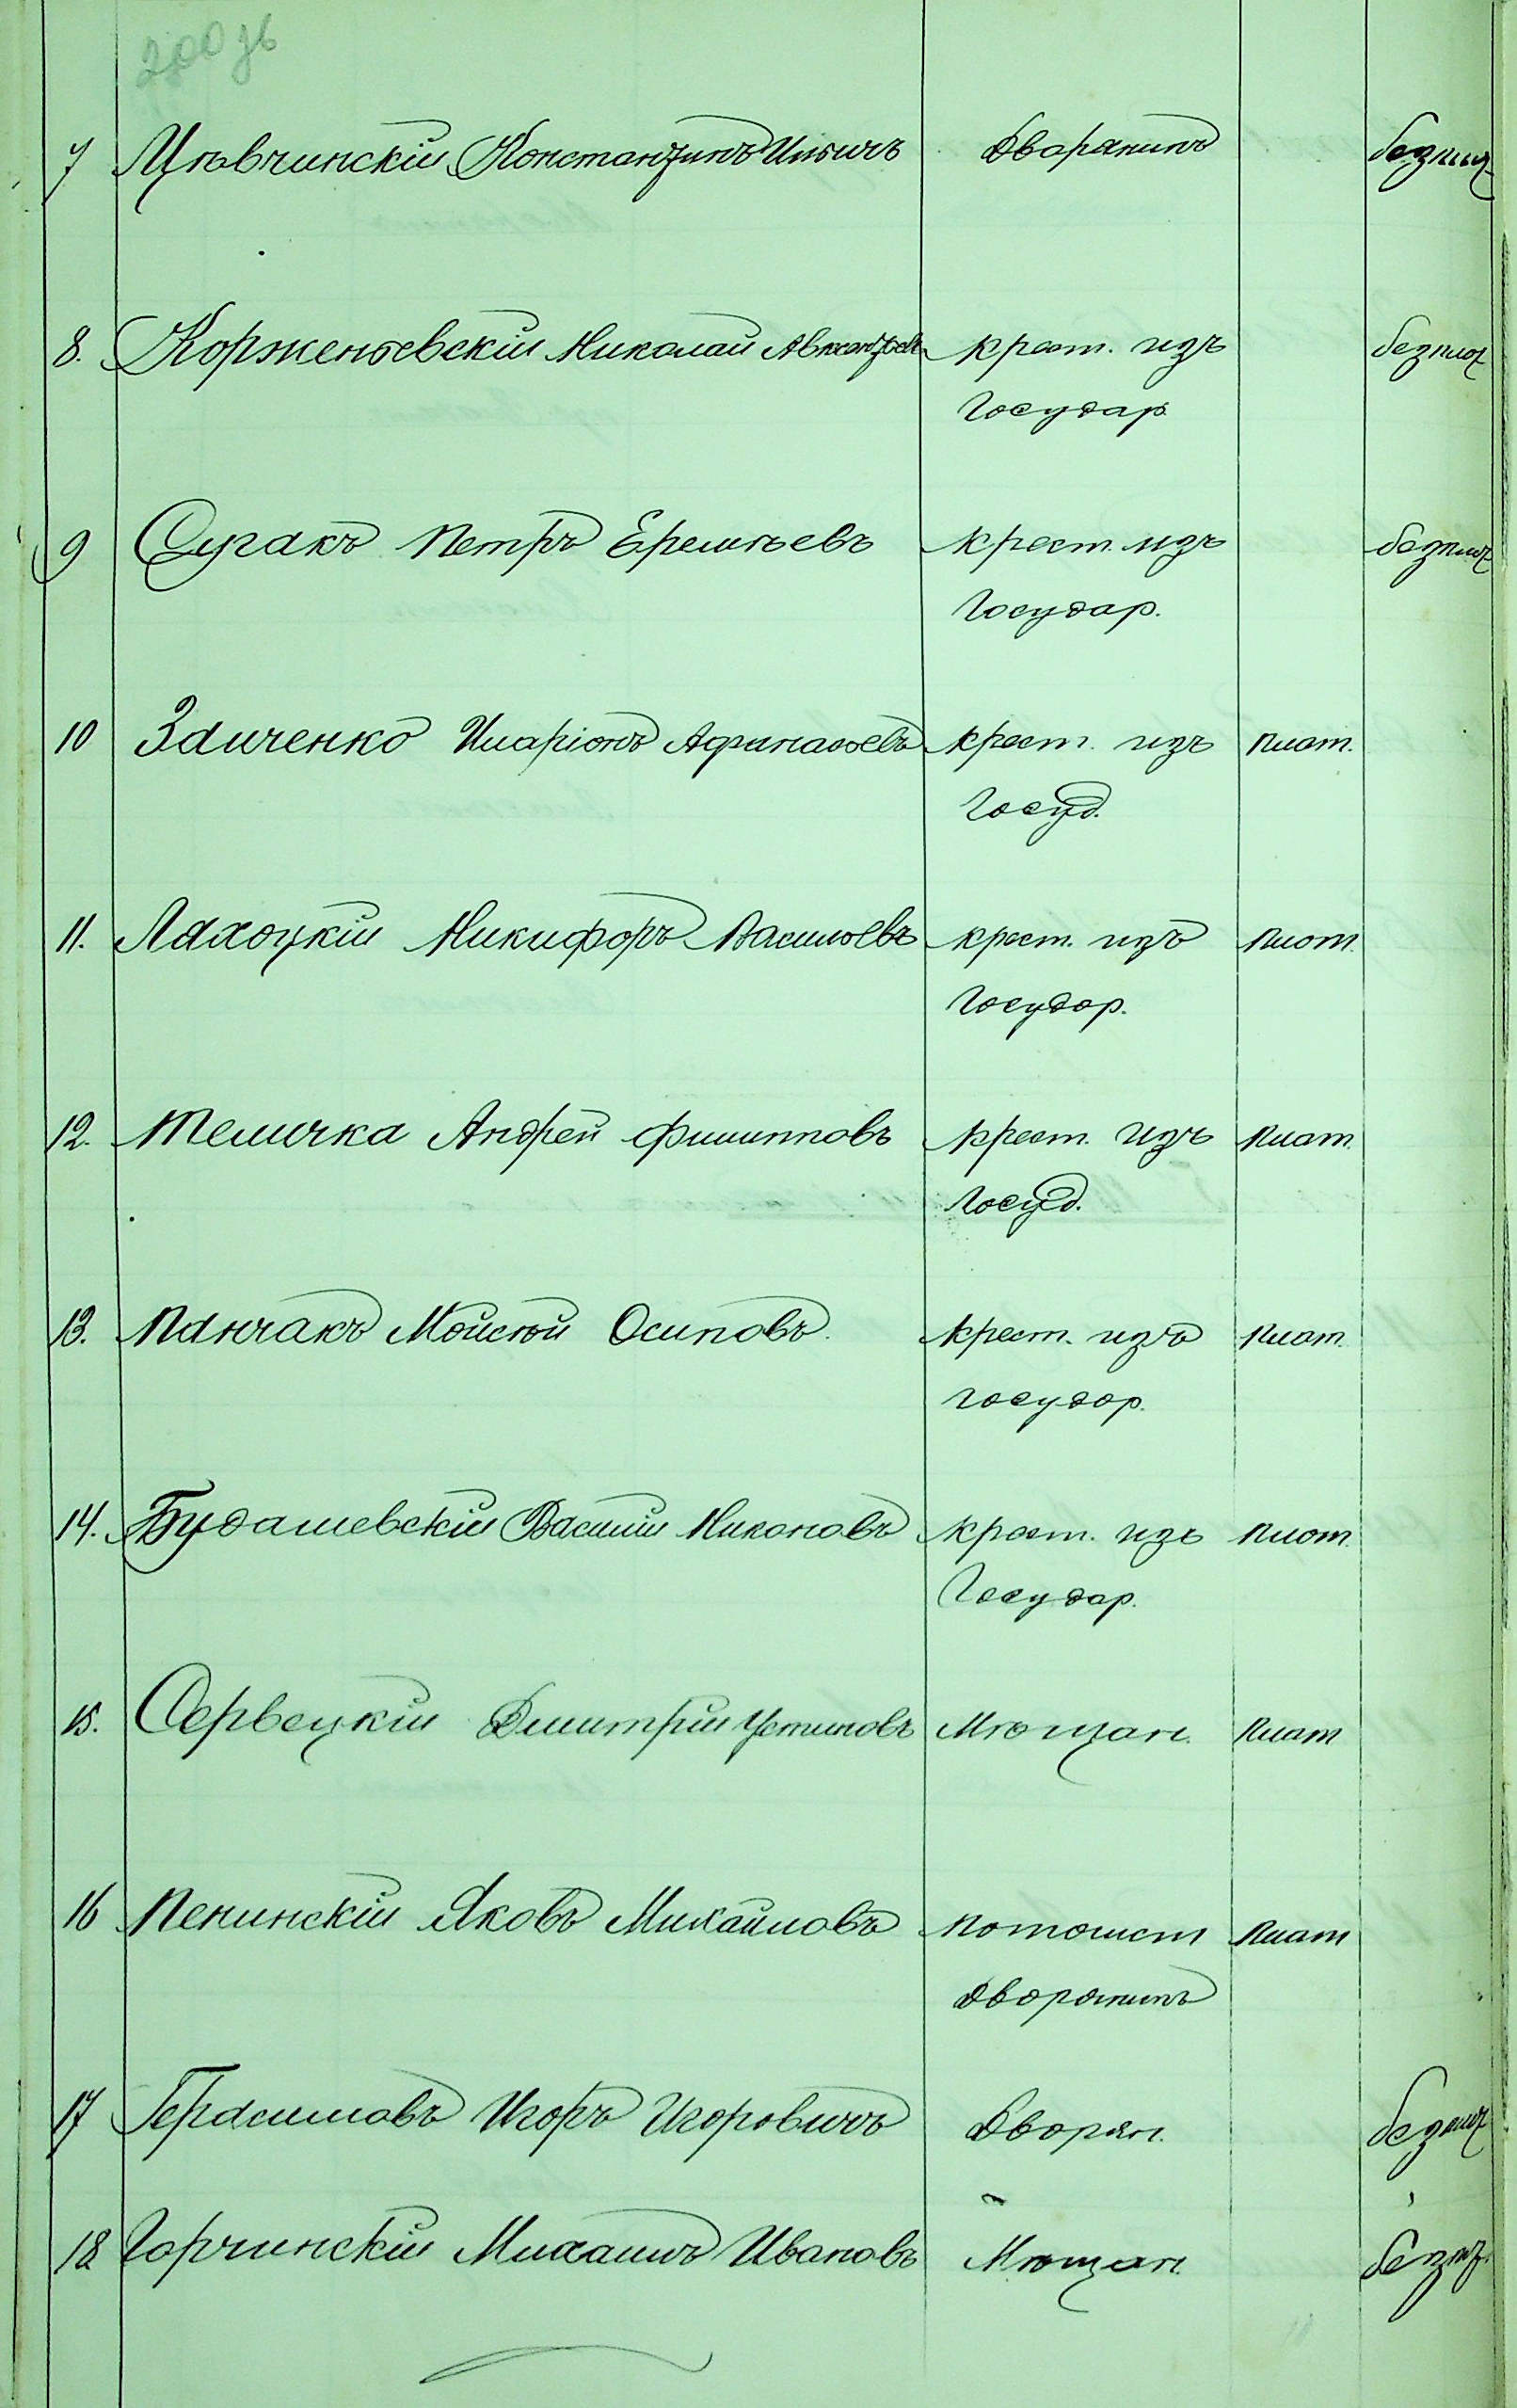 200 зв
7 Цѣвчинскій Константинъ Ильичъ Дворянинъ безпл.
8. Корженьевскій Николай Авксентьев. крест. изъ безпл.
Государ.
9 Сугакъ Петръ Еремѣевъ крест. изъ безпл.
Государ.
10 Здиченко Иларіонъ Афанасьевъ крест. изъ плат.
Госуд.
11. Ляхоцкій Никифоръ Васильевъ крест. изъ плат.
Государ.
12. Теличка Андрей Филипповъ крест. изъ плат.
Госуд.
13. Панчакъ Мойсей Осиповъ. крест. изъ плат.
государ.
14. Будашевскій Василій Никоновъ крест. изъ плат.
Государ.
15. Сервецкій Дмитрій Устиновъ Мѣщан. плат
16 Пенинскій Яковъ Михайловъ потомст плат
дворянинъ
17 Герасимовъ Игоръ Игоровичъ Дворян. безпл
18 Горчинскій Михаилъ Ивановъ Мѣщан. безпл.